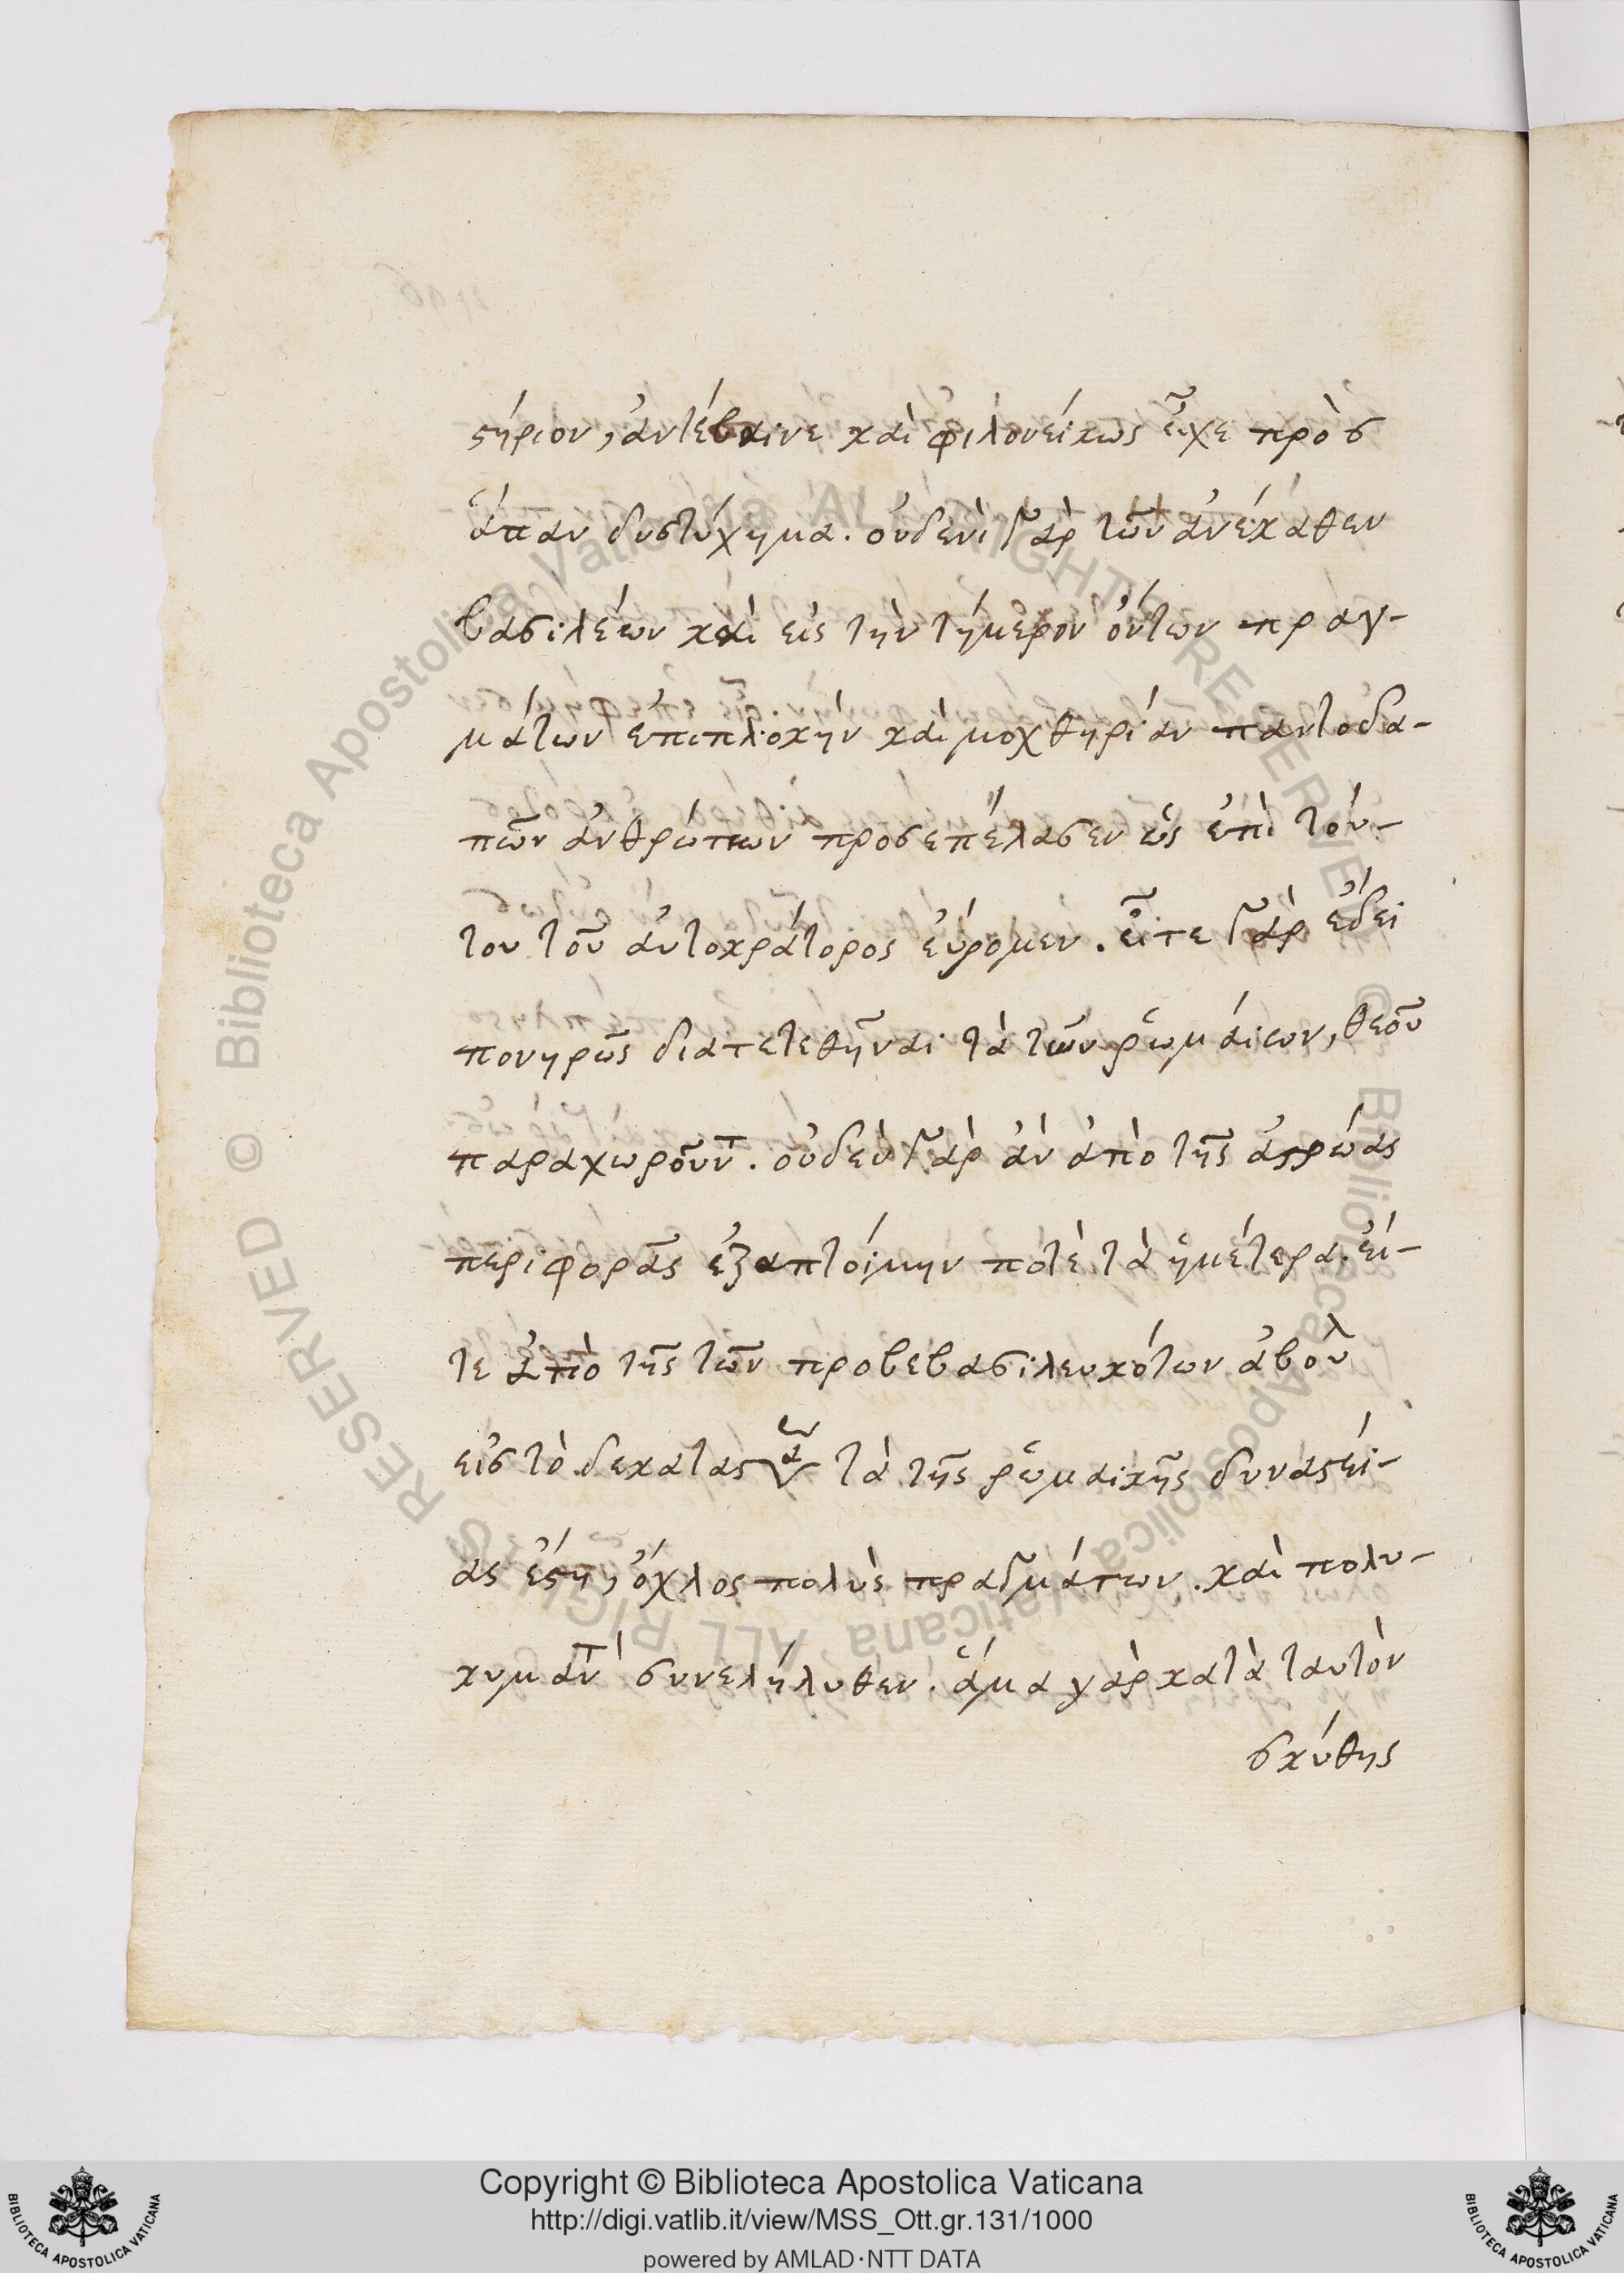 στήριον, ἀντέβαινε καὶ φιλονείκως εἶχε πρὸς
ἅπαν δυστύχημα. οὐδενὶ γὰρ τῶν ἀνέκαθεν
βασιλέων καὶ εἰς τὴν τήμερον ὄντων πραγ-
μάτων ἐπιπλοκὴν καὶ μοχθηρίαν παντοδα-
πῶν ἀνθρώπων προσεπέλασεν ὡς ἐπὶ τού-
του τοῦ αὐτοκράτορος εὕρομεν. εἴτε γὰρ ἔδει
πονηρῶς διατετεθῆναι τὰ τῶν ῥωμαίων, θεοῦ
παραχωροῦντ. οὐδὲν γὰρ ἂν ἀπὸ τῆς ἀστρώας
περιφορᾶς ἐξαπτοίμην ποτὲ τὰ ἡμέτερα. εἴ-
τε ἀπὸ τῆς τῶν προβεβασιλευκότων ἀβουλ
εἰς τὸ δεκατας τὰ τῆς ῥωμαικῆς δυναστεί-
ας ἔστη, ὄχλος πολὺς πραγμάτων. καὶ πολυ-
κυμαντ συνελήλυθεν. ἅμα γὰρ κατὰ ταυτὸν
σκύθης
Copyright © Biblioteca Apostolica Vaticana
http://digi.vatlib.it/view/MSS_Ott.gr.131/1000
powered by AMLAD·NTT DATA
BIBLIOTECA APOSTOLICA VATICANA
BIBLIOTECA APOSTOLICA VATICANA
© Biblioteca Apostolica Vaticana ALL RIGHTS RESERVED
© Biblioteca Apostolica Vaticana ALL RIGHTS RESERVED